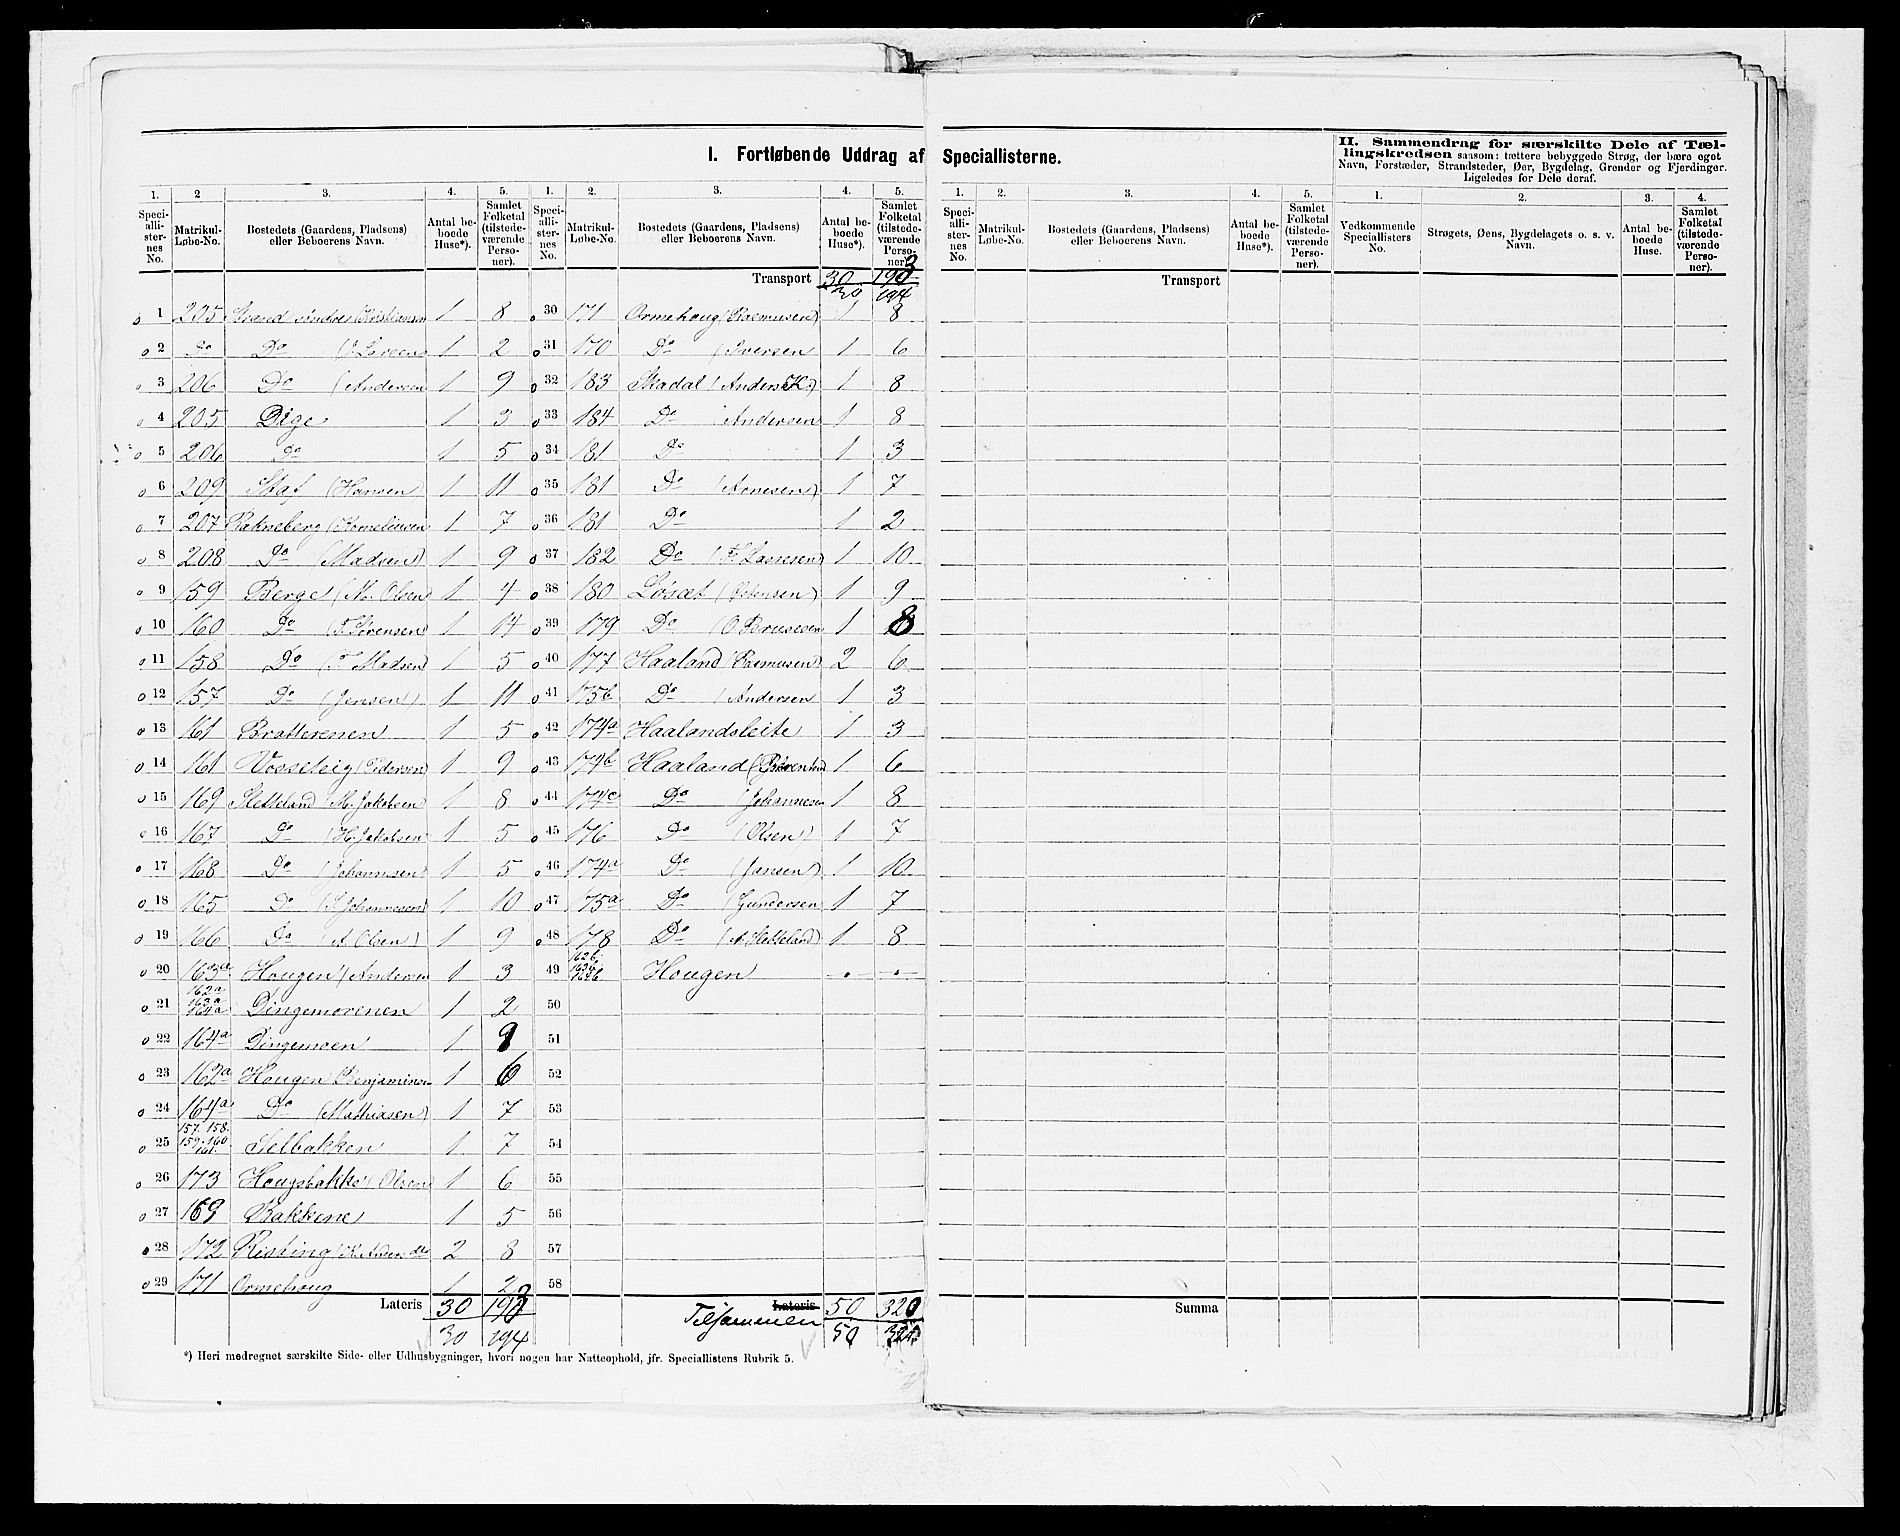 I. Fortløbende Uddrag af Speciallisterne.
II. Sammendrag for særskilte Dele af Tæl-
lingskredsen saasom: tættere bebyggede Strøg, der bære eget
Navn, Forstæder, Strandsteder, Øer, Bygdelag, Grender og Fjerdinger.
Ligeledes for Dele deraf.
1. 2 3. 4. 5. 1. 2. 3. 4. 5.
Speci-alli-ster-nes No. Matrikul-Løbe-No. Bostedets (Gaardens, Pladsens) eller Beboerens Navn. Antal be-boede Huse*). Samlet Folketal (tilstede-værende Perso-ner).
Speci-alli-ster-nes No. Matrikul-Løbe-No. Bostedets (Gaardens, Pladsens) eller Beboerens Navn. Antal be-boede Huse*). Samlet Folketal (tilstede-værende Perso-ner).
Transport 30 193
30 194
1 205 Strand søndre (Kristiansen 1 8
2 Do Do (Larsen 1 2
3 206 Do (Andersen 1 9
4 205 Dige 1 3
5 206 Do 1 5
6 209 Skaf (Hansen) 1 11
7 207 Rakneberg (Kornelius en 1 7
8 208 Do (Madsen) 1 9
9 159 Berge (M. Olsen) 1 4
10 160 Do (T. Sørensen) 1 14
11 158 Do (T Madsen) 1 5
12 157 Do (Jensen) 1 11
13 161 Bratterenen 1 5
14 161 (Pedersen) 1 9
15 169 Sletteland (M. Jakobsen 1 8
16 167 Do (H. Jakobsen 1 5
17 168 Do (Johannesen) 1 5
18 165 Do (Johannesen) 1 10
19 166 Do (A. Olsen) 1 9
20 163a Hougen (Andersen 1 3
21 162a 163a 164a Dingemorenen 1 2
22 164a Dingemoen 1 9
23 162a Hougen (Benjaminsen 1 6
24 164a Do (Mathiasen) 1 7
25 157. 158. 159. 160 161. Selbakken 1 7
26 173 Hougsbakke (Olsen) 1 6
27 169 Bakkene 1 5
28 172 Risting 2 8
29 171 Ormehoug 1 2
Lateris 30 193
30 194
30 171 Ormehoug (Rasmusen) 1 8
31 170 Do (Iversen 1 6
32 183 Skadal (Anders K.) 1 8
33 184 Do (Andersen 1 8
34 181 Do 1 3
35 181 Do (Arnesen) 1 7
36 181 Do 1 2
37 182 Do (Larsesen) 1 10
38 180 Løsæt (Østensen) 1 9
39 179 Do (O Brusesen 1 8
40 177 Haaland (Rasmusen) 2 6
41 175b Do (Andersen 1 3
42 174a Haalandsleite 1 3
43 174b Haaland 1 6
44 174c Do (Johannesen 1 8
45 176 Do (Olsen) 1 7
46 174a Do (Jansen) 1 10
47 175a Do (Gundersen 1 7
48 178 Do (A. Sletteland) 1 8
49 162b. 163b 164b Hougen
50
51
52
53
54
55
56
57
58
Lateris 50 320
Tilsammen 50
*) Heri medregnet særskilte Side- eller Udhusbygninger, hvori nogen har Natteophold, jfr. Speciallistens Rubrik 5.
1. 2. 3. 4. 5.
Speci-alli-ster-nes No. Matrikul-Løbe-No. Bostedets (Gaardens, Pladsens) eller Beboerens Navn. Antal be-boede Huse*). Samlet Folketal (tilstede-værende Perso-ner).
Transport
Summa
1. 2. 3. 4.
Vedkommende Speciallisters No. Strøgets, Øens, Bygdelagets o. s. v. Navn. Antal be-boede Huse. Samlet Folketal (tilstede-værende Perso-ner).